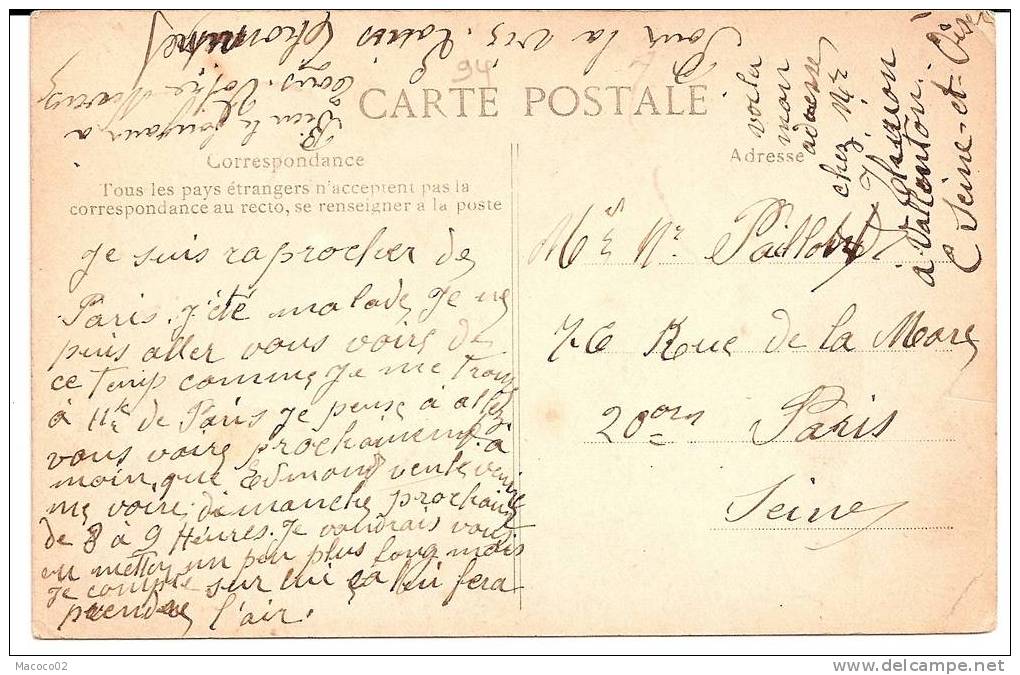 Pour la vis. Louis Thomas
Bien le bonjour a
tous. Votre
94
CARTE POSTALE
Correspondance
Tous les pays étrangers n'acceptent pas la
correspondance au recto, se renseigner a la poste
Je suis raprocher de
Paris. J'été malade, Je ne
puis aller vous voire de
ce temp comme Je me trouve
à 11k de Paris Je pense à aller
vous voire prochainement, a
moin, que Edmond veule venire
me voire, dimanche prochain
de 8 à 9 Heures. Je voudrais vous
en mettre un peu plus long mais
Je compte sur lui ça lui fera
prendre l'air.
Adresse
voila
mon
adresse
chez Mr
Simon
a Valenton
Seine-et-Oise
Mr Paillobet
76 Rue de la Mare
20em Paris
Seine
Macoco02
delcampe.net